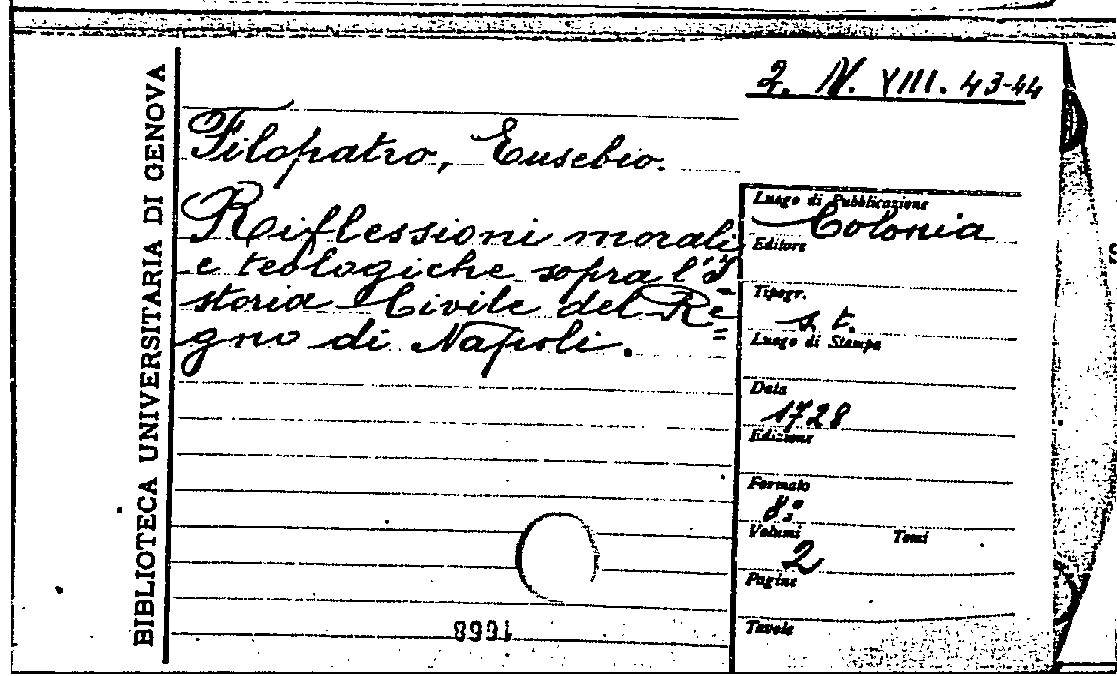 BIBLIOTECA UNIVERSITARIA DI GENOVA
2. N. VIII. 43-44
Filopatro, Eusebio.
Riflessioni morali
e teologiche sopra l'I=
storia Civile del Re=
gno di Napoli.
Luogo di Pubblicazione
Colonia
Editore
Tipogr.
s. t.
Luogo di Stampa
Data
1728
Edizione
Formato
8°
Volumi Tomi
2
Pagine
Tavole
1668